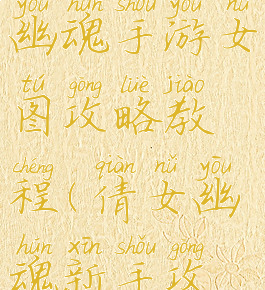 yōu hún shǒu yóu nǚ
幽魂手游女
tú gōng lüè jiào
图攻略教
chéng qiàn nǚ yōu
程(倩女幽
hún xīn shǒu gōng
魂新手攻